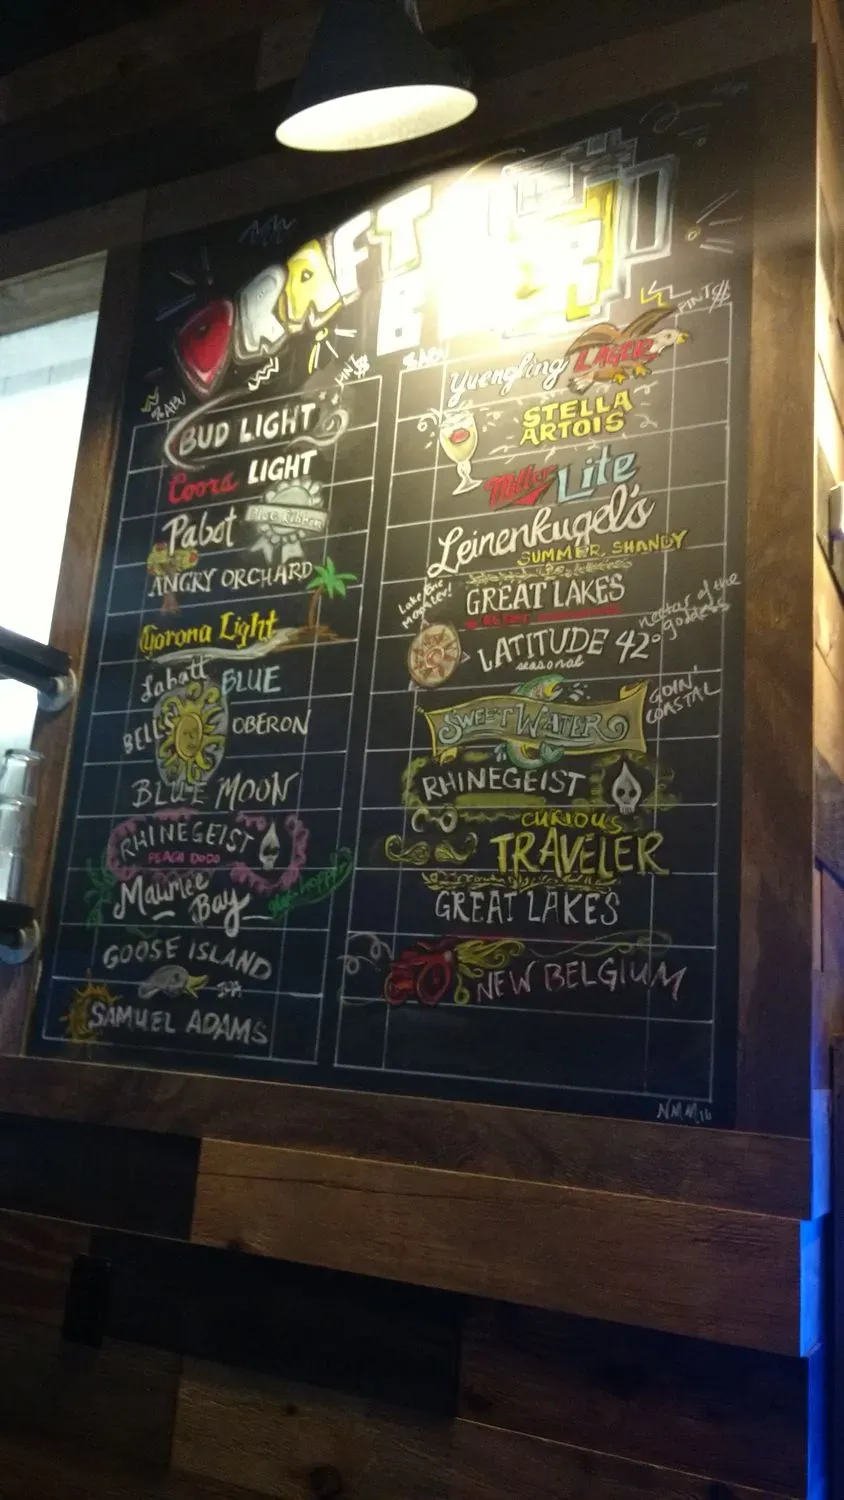 DRAFT
BEER
% ABV
PINT $
BUD LIGHT
Coors LIGHT
Pabst Blue Ribbon
ANGRY ORCHARD
Corona Light
Labatt BLUE
BELL'S OBERON
BLUE MOON
RHINEGEIST
PEACH DODO
Maumee
Bay
GOOSE ISLAND
IPA
SAMUEL ADAMS
% ABV
PINT $
Yuengling LAGER
STELLA
ARTOIS
Miller Lite
Leinenkugel's
SUMMER SHANDY
Lake Erie
Monster!
GREAT LAKES
LATITUDE 42°
seasonal
nectar of the
goddess
SWEET WATER
GOIN'
COASTAL
RHINEGEIST
CURIOUS
TRAVELER
GREAT LAKES
NEW BELGIUM
NMM 16